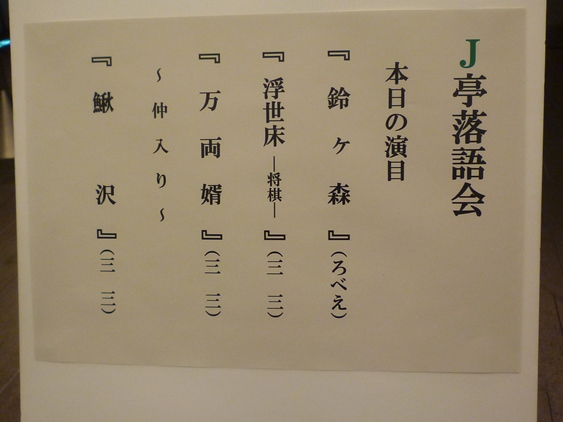 J亭落語会
本日の演目
『鈴ヶ森』(ろべえ)
『浮世床―将棋―』(三三)
『万両婿』(三三)
~仲入り~
『鰍沢』(三三)